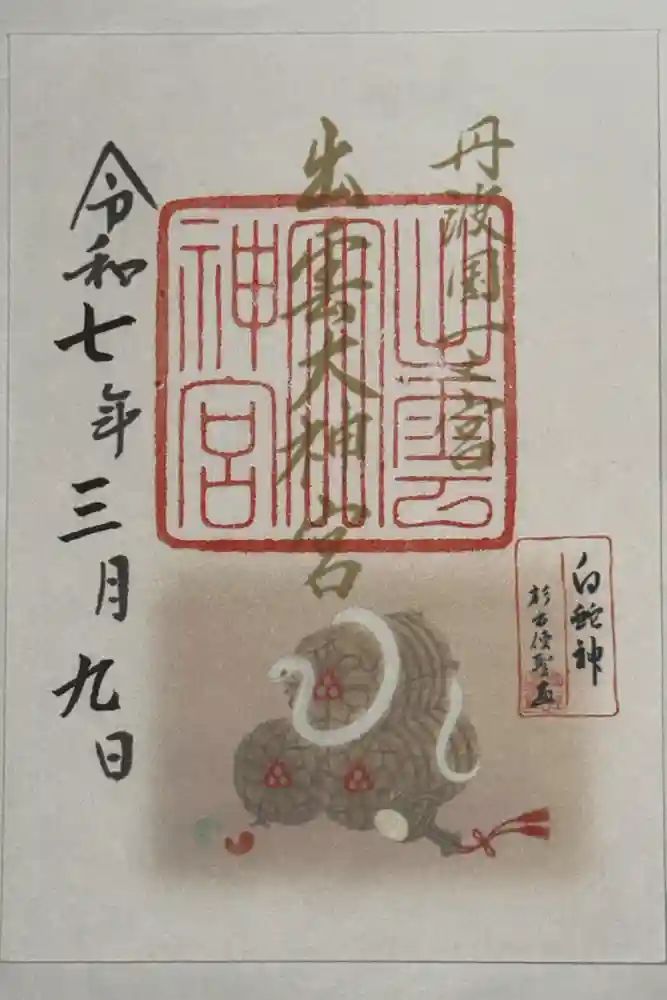 丹波国一之宮
出雲大神宮
出雲大神宮
令和七年三月九日
白蛇神